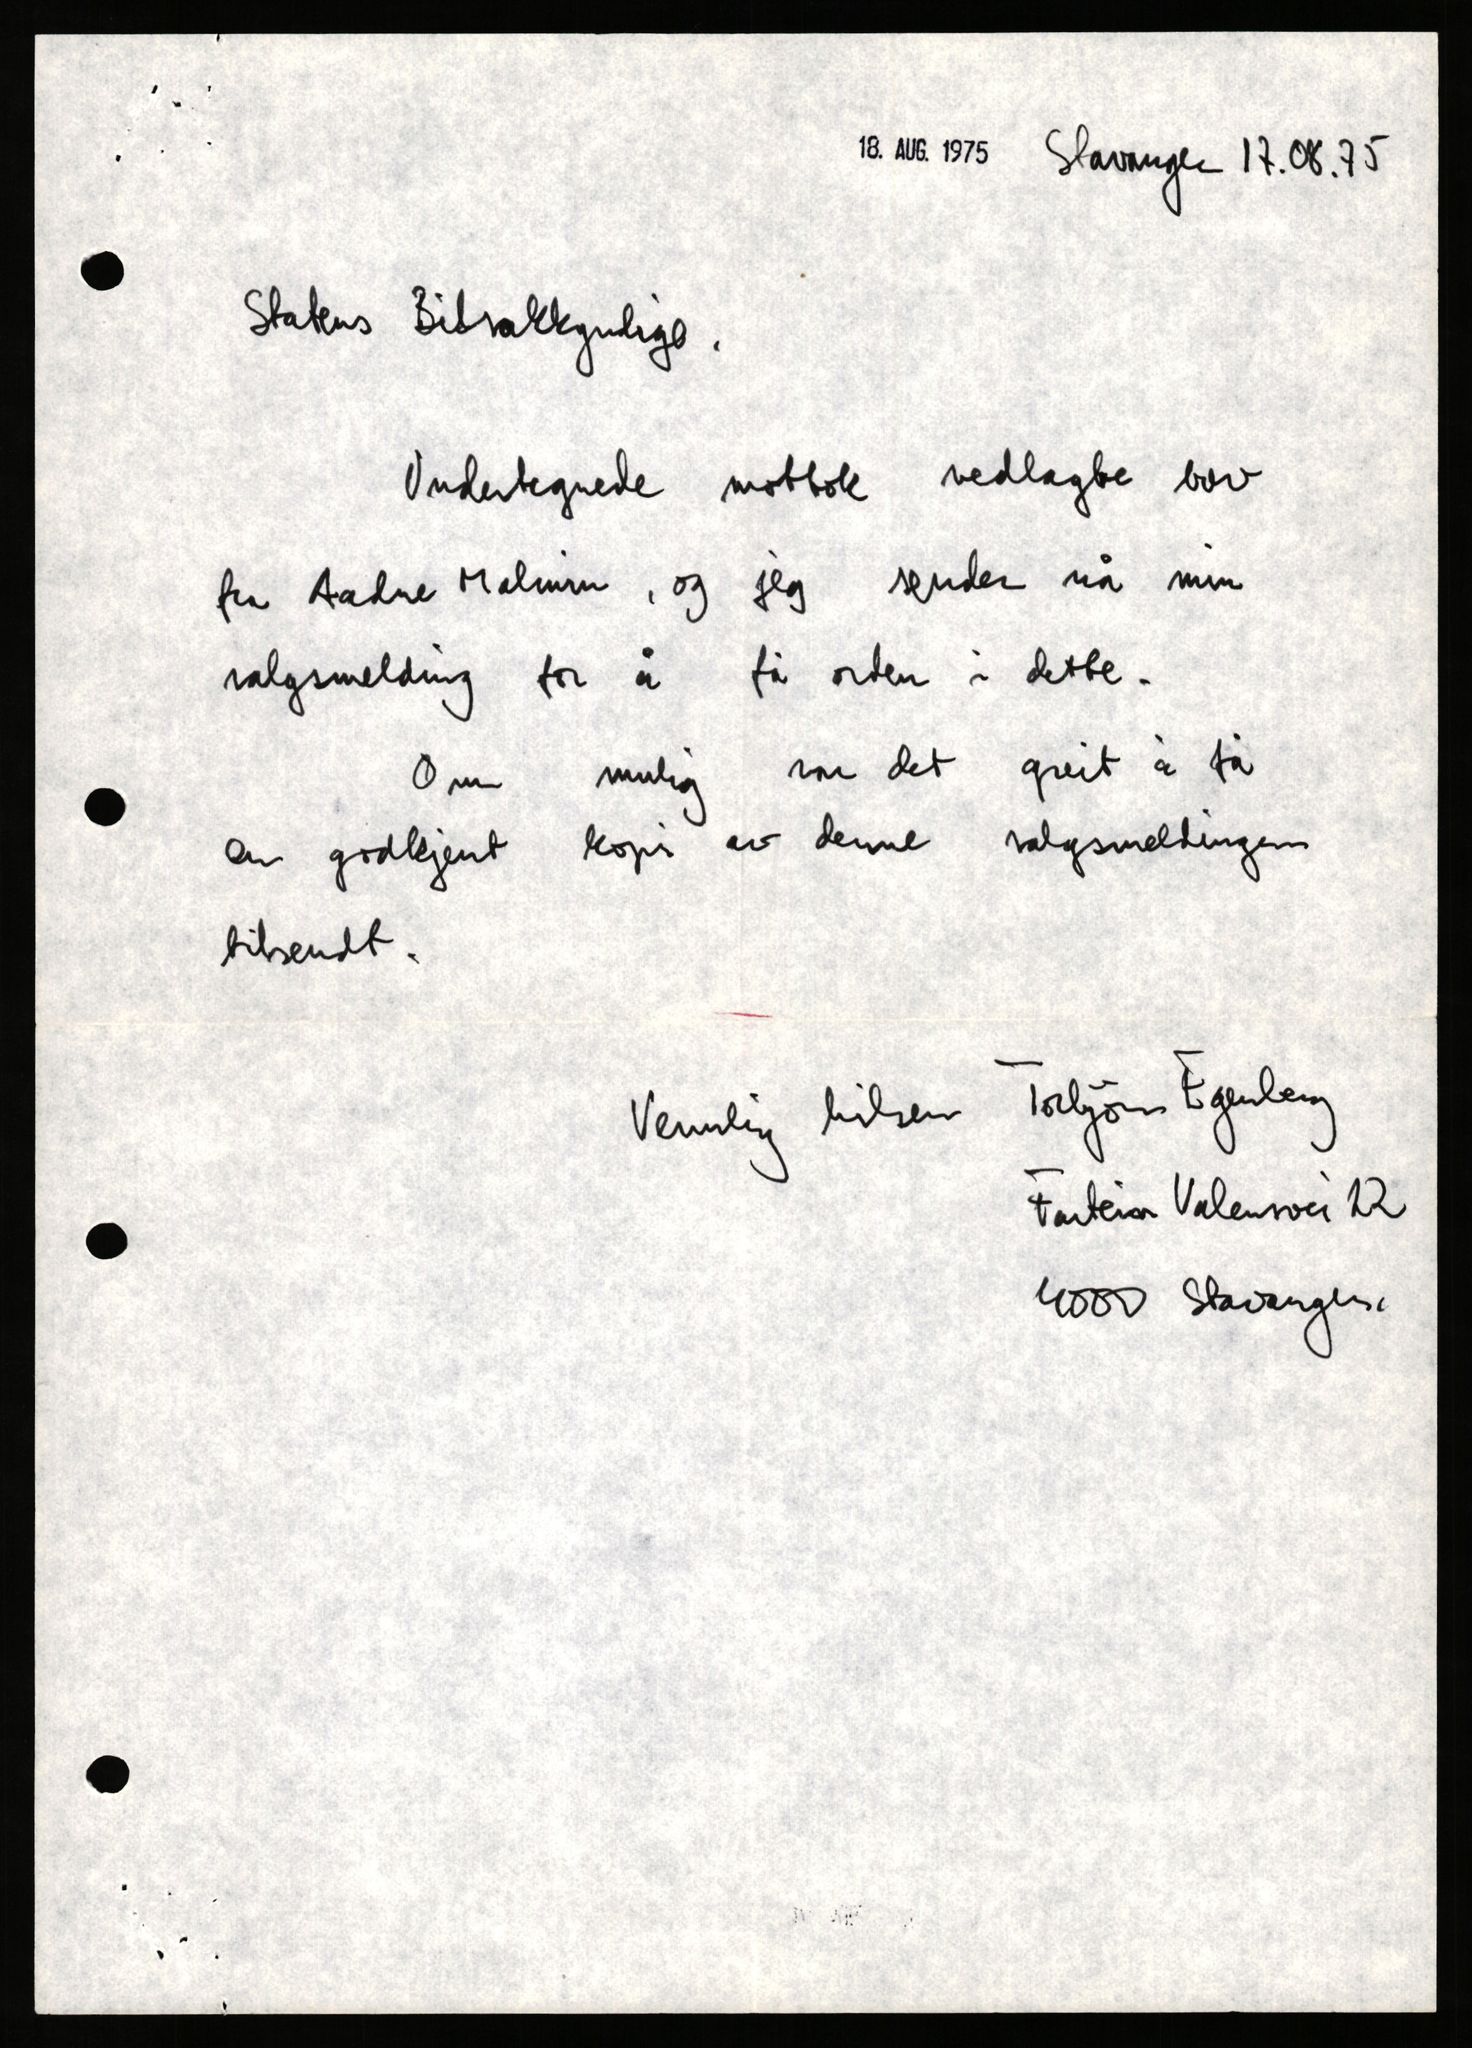 18. AUG. 1975 Stavanger 17.08.75
Statens Bilsakkyndige.
Undertegnede mottok vedlagte brev
fra Aadne Malmin, og jeg sender nå min
salgsmelding for å få orden i dette.
Om mulig var det greit å få
en godkjent kopi av denne salgsmeldingen
tilsendt.
Vennlig hilsen Torbjörn Egenberg
Valensvei 12
4000 Stavanger.